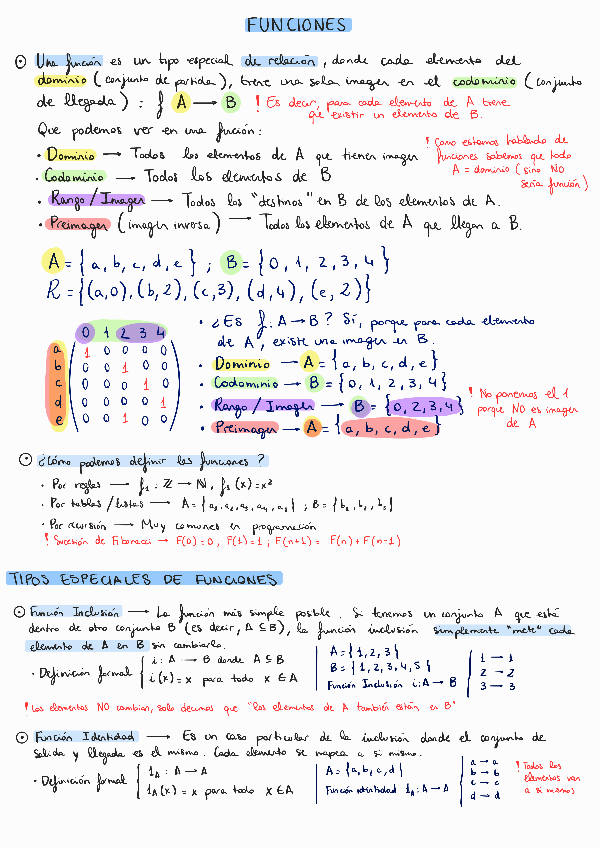 FUNCIONES
⊙ Una función es un tipo especial de relación, donde cada elemento del
dominio (conjunto de partida), tiene una sola imagen en el codominio (conjunto
de llegada) : f A → B
! Es decir, para cada elemento de A tiene
que existir un elemento de B.
Que podemos ver en una función:
• Dominio → Todos los elementos de A que tienen imagen
• Codominio → Todos los elementos de B
• Rango / Imagen → Todos los "destinos" en B de los elementos de A.
• Preimagen (imagen inversa) → Todos los elementos de A que llegan a B.
! Como estamos hablando de
funciones sabemos que todo
A = dominio (sino NO
sería función)
A = {a, b, c, d, e} ; B = {0, 1, 2, 3, 4}
R = {(a,0), (b,2), (c,3), (d,4), (e,2)}
0 1 2 3 4
a 1 0 0 0 0
b 0 0 1 0 0
c 0 0 0 1 0
d 0 0 0 0 1
e 0 0 1 0 0
• ¿Es f: A → B? Sí, porque para cada elemento
de A, existe una imagen en B.
• Dominio → A = {a, b, c, d, e}
• Codominio → B = {0, 1, 2, 3, 4}
• Rango / Imagen → B = {0, 2, 3, 4}
• Preimagen → A = {a, b, c, d, e}
! No ponemos el 1
porque NO es imagen
de A
⊙ ¿Cómo podemos definir las funciones?
• Por reglas → f₁ : ℤ → ℕ, f₁(x) = x²
• Por tablas / listas → A = {a₁, a₂, a₃, a₄, a₅} ; B = {b₁, b₂, b₃}
• Por recursión → Muy comunes en programación
! Sucesión de Fibonacci → F(0) = 0, F(1) = 1 ; F(n+1) = F(n) + F(n-1)
TIPOS ESPECIALES DE FUNCIONES
⊙ Función Inclusión → La función más simple posible. Si tenemos un conjunto A que está
dentro de otro conjunto B (es decir, A ⊆ B), la función inclusión simplemente "mete" cada
elemento de A en B sin cambiarlo.
• Definición formal
i : A → B donde A ⊆ B
i(x) = x para todo x ∈ A
A = {1, 2, 3}
B = {1, 2, 3, 4, 5}
Función Inclusión i: A → B
1 → 1
2 → 2
3 → 3
! Los elementos NO cambian, solo decimos que "los elementos de A también están en B"
⊙ Función Identidad → Es un caso particular de la inclusión donde el conjunto de
salida y llegada es el mismo. Cada elemento se mapea a si mismo.
• Definición formal
1A : A → A
1A(x) = x para todo x ∈ A
A = {a, b, c, d}
Función identidad 1A : A → A
a → a
b → b
c → c
d → d
! Todos los
elementos van
a si mismos